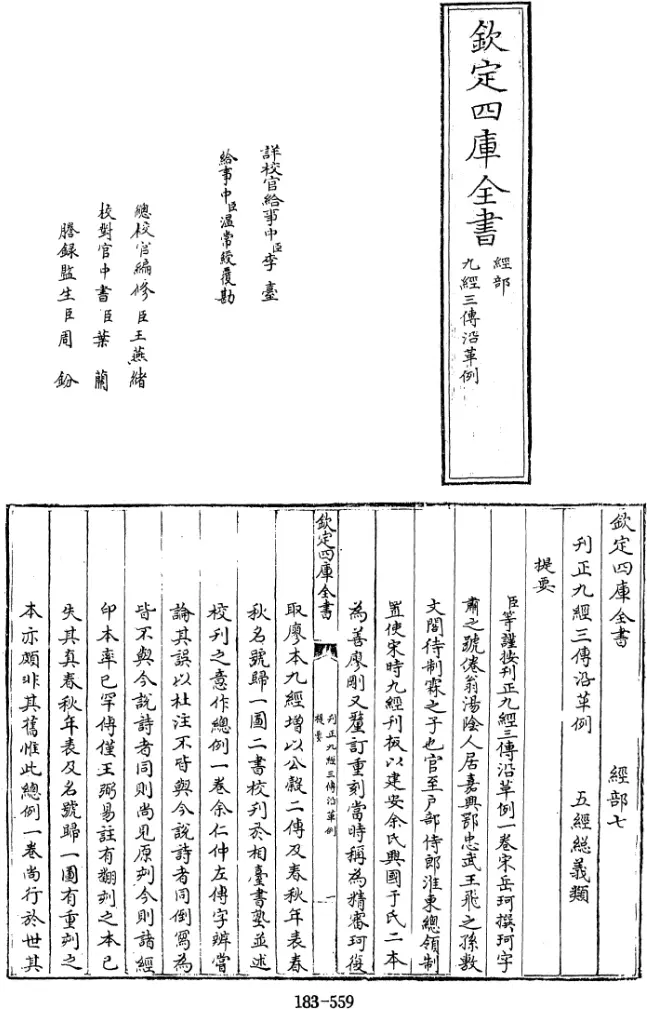 欽定四庫全書
經部
九經三傳沿革例
詳校官給事中臣李臺
給事中臣溫常綬覆勘
總校官編修臣王燕緒
校對官中書臣葉蘭
謄錄監生臣周鈖
欽定四庫全書 經部七
刊正九經三傳沿革例 五經總義類
提要
臣等謹按刊正九經三傳沿革例一卷宋岳珂撰珂字
肅之號倦翁湯陰人居嘉興鄂忠武王飛之孫敷
文閣待制霖之子也官至戶部侍郎淮東總領制
置使宋時九經刊板以建安余氏興國于氏二本
為善廖剛又釐訂重刻當時稱為精審珂復
欽定四庫全書
刊正九經三傳沿革例
提要
一
取廖本九經增以公穀二傳及春秋年表春
秋名號歸一圖二書校刊於相臺書塾並述
校刊之意作總例一卷余仁仲左傳字辨嘗
論其誤以杜注不皆與今說詩者同倒寫為
皆不與今說詩者同則尚見原刻今則諸經
印本率已罕傳僅王弼易註有翻刻之本已
失其真春秋年表及名號歸一圖有重刻之
本亦頗非其舊惟此總例一卷尚行於世其
183-559